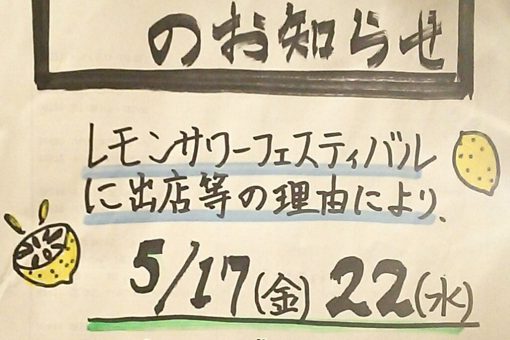 のお知らせ
レモンサワーフェスティバル
に出店等の理由により、
5/17(金) 22(水)